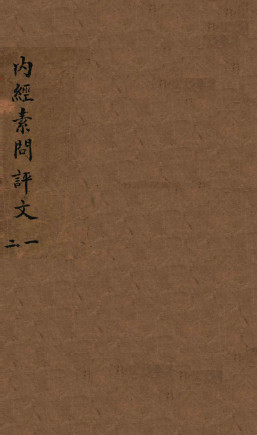 内經素問評文
一二